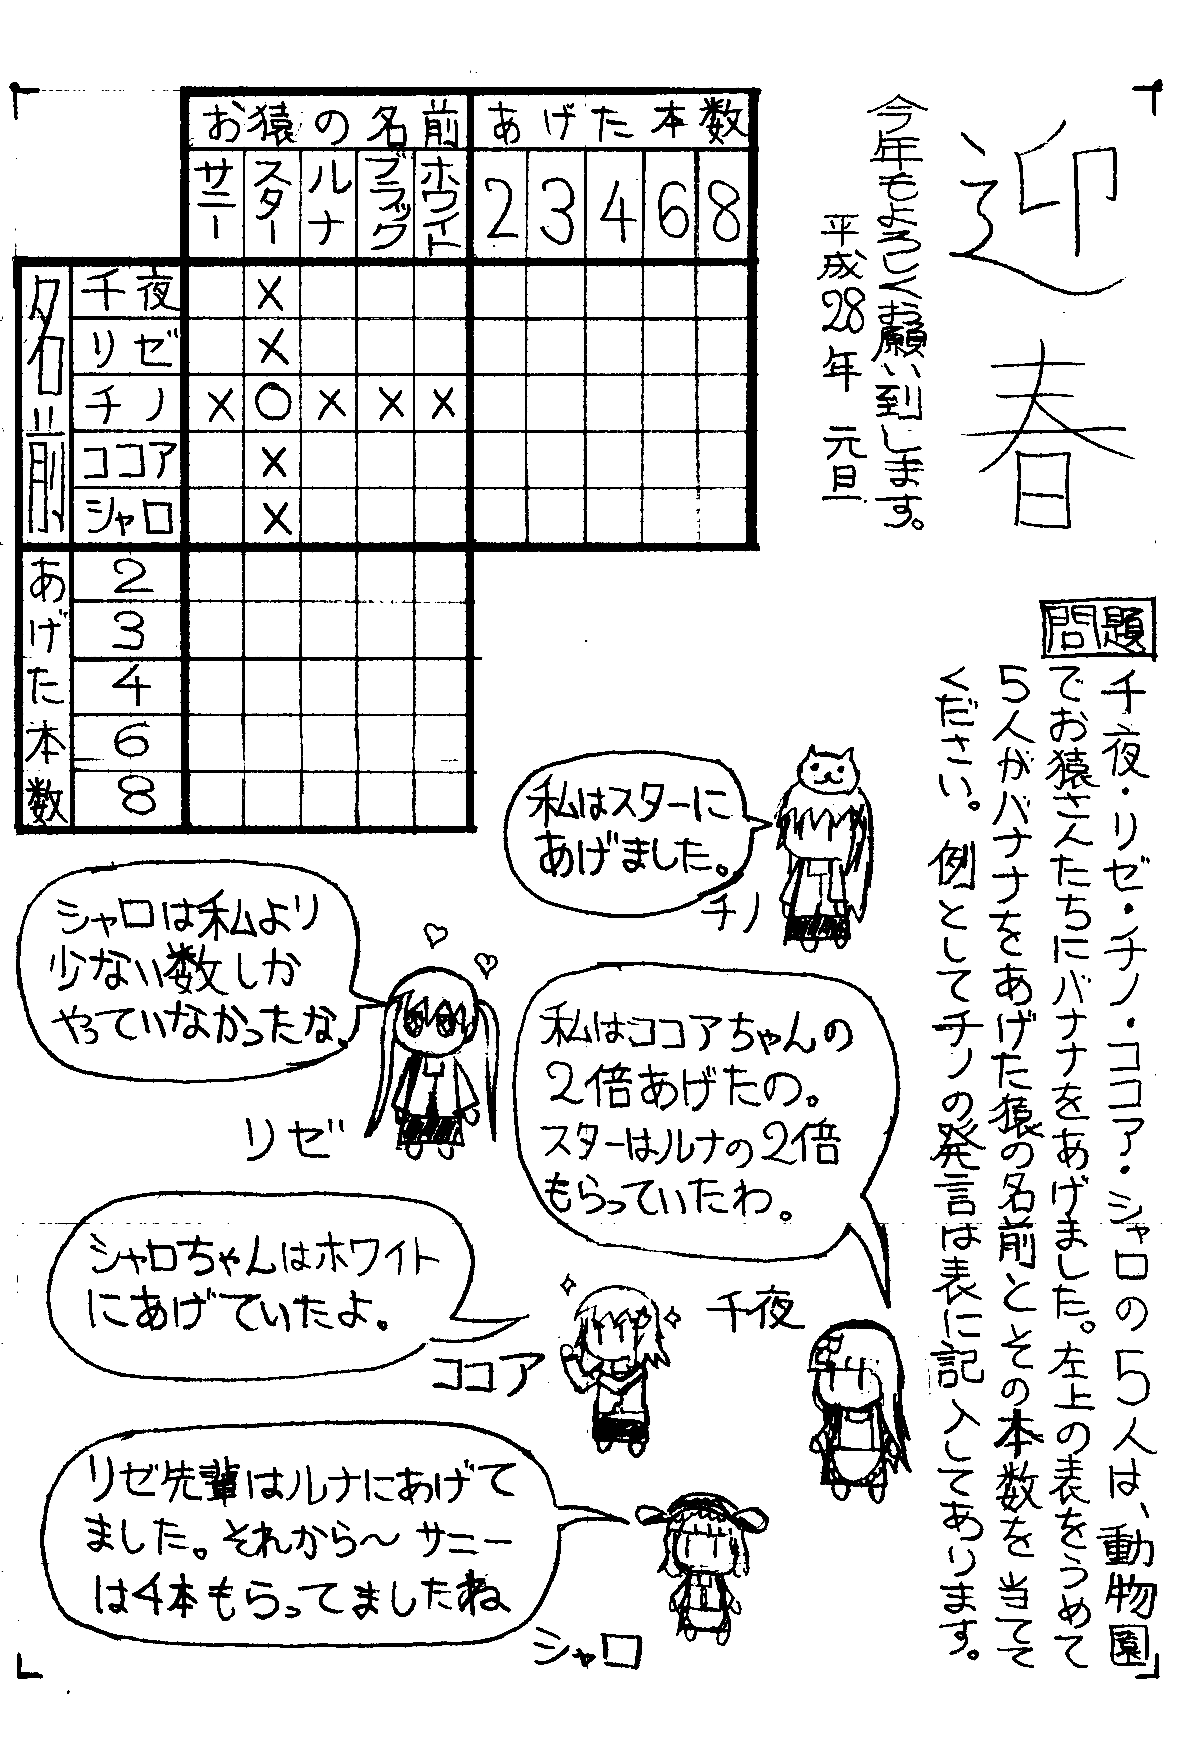 迎春
今年もよろしくお願い到します。
平成28年 元旦
お猿の名前 あげた本数
サニー スター ルナ ブラック ホワイト 2 3 4 6 8
名前
千夜 ×
リゼ ×
チノ × ○ × × ×
ココア ×
シャロ ×
あげた本数
2
3
4
6
8
問題
千夜・リゼ・チノ・ココア・シャロの5人は、動物園
でお猿さんたちにバナナをあげました。左上の表をうめて
5人がバナナをあげた猿の名前とその本数を当てて
ください。例としてチノの発言は表に記入してあります。
私はスターに
あげました。
チノ
シャロは私より
少ない数しか
やっていなかったな。
リゼ
私はココアちゃんの
2倍あげたの。
スターはルナの2倍
もらっていたわ。
千夜
シャロちゃんはホワイト
にあげていたよ。
ココア
リゼ先輩はルナにあげて
ました。それから～サニー
は4本もらってましたね
シャロ